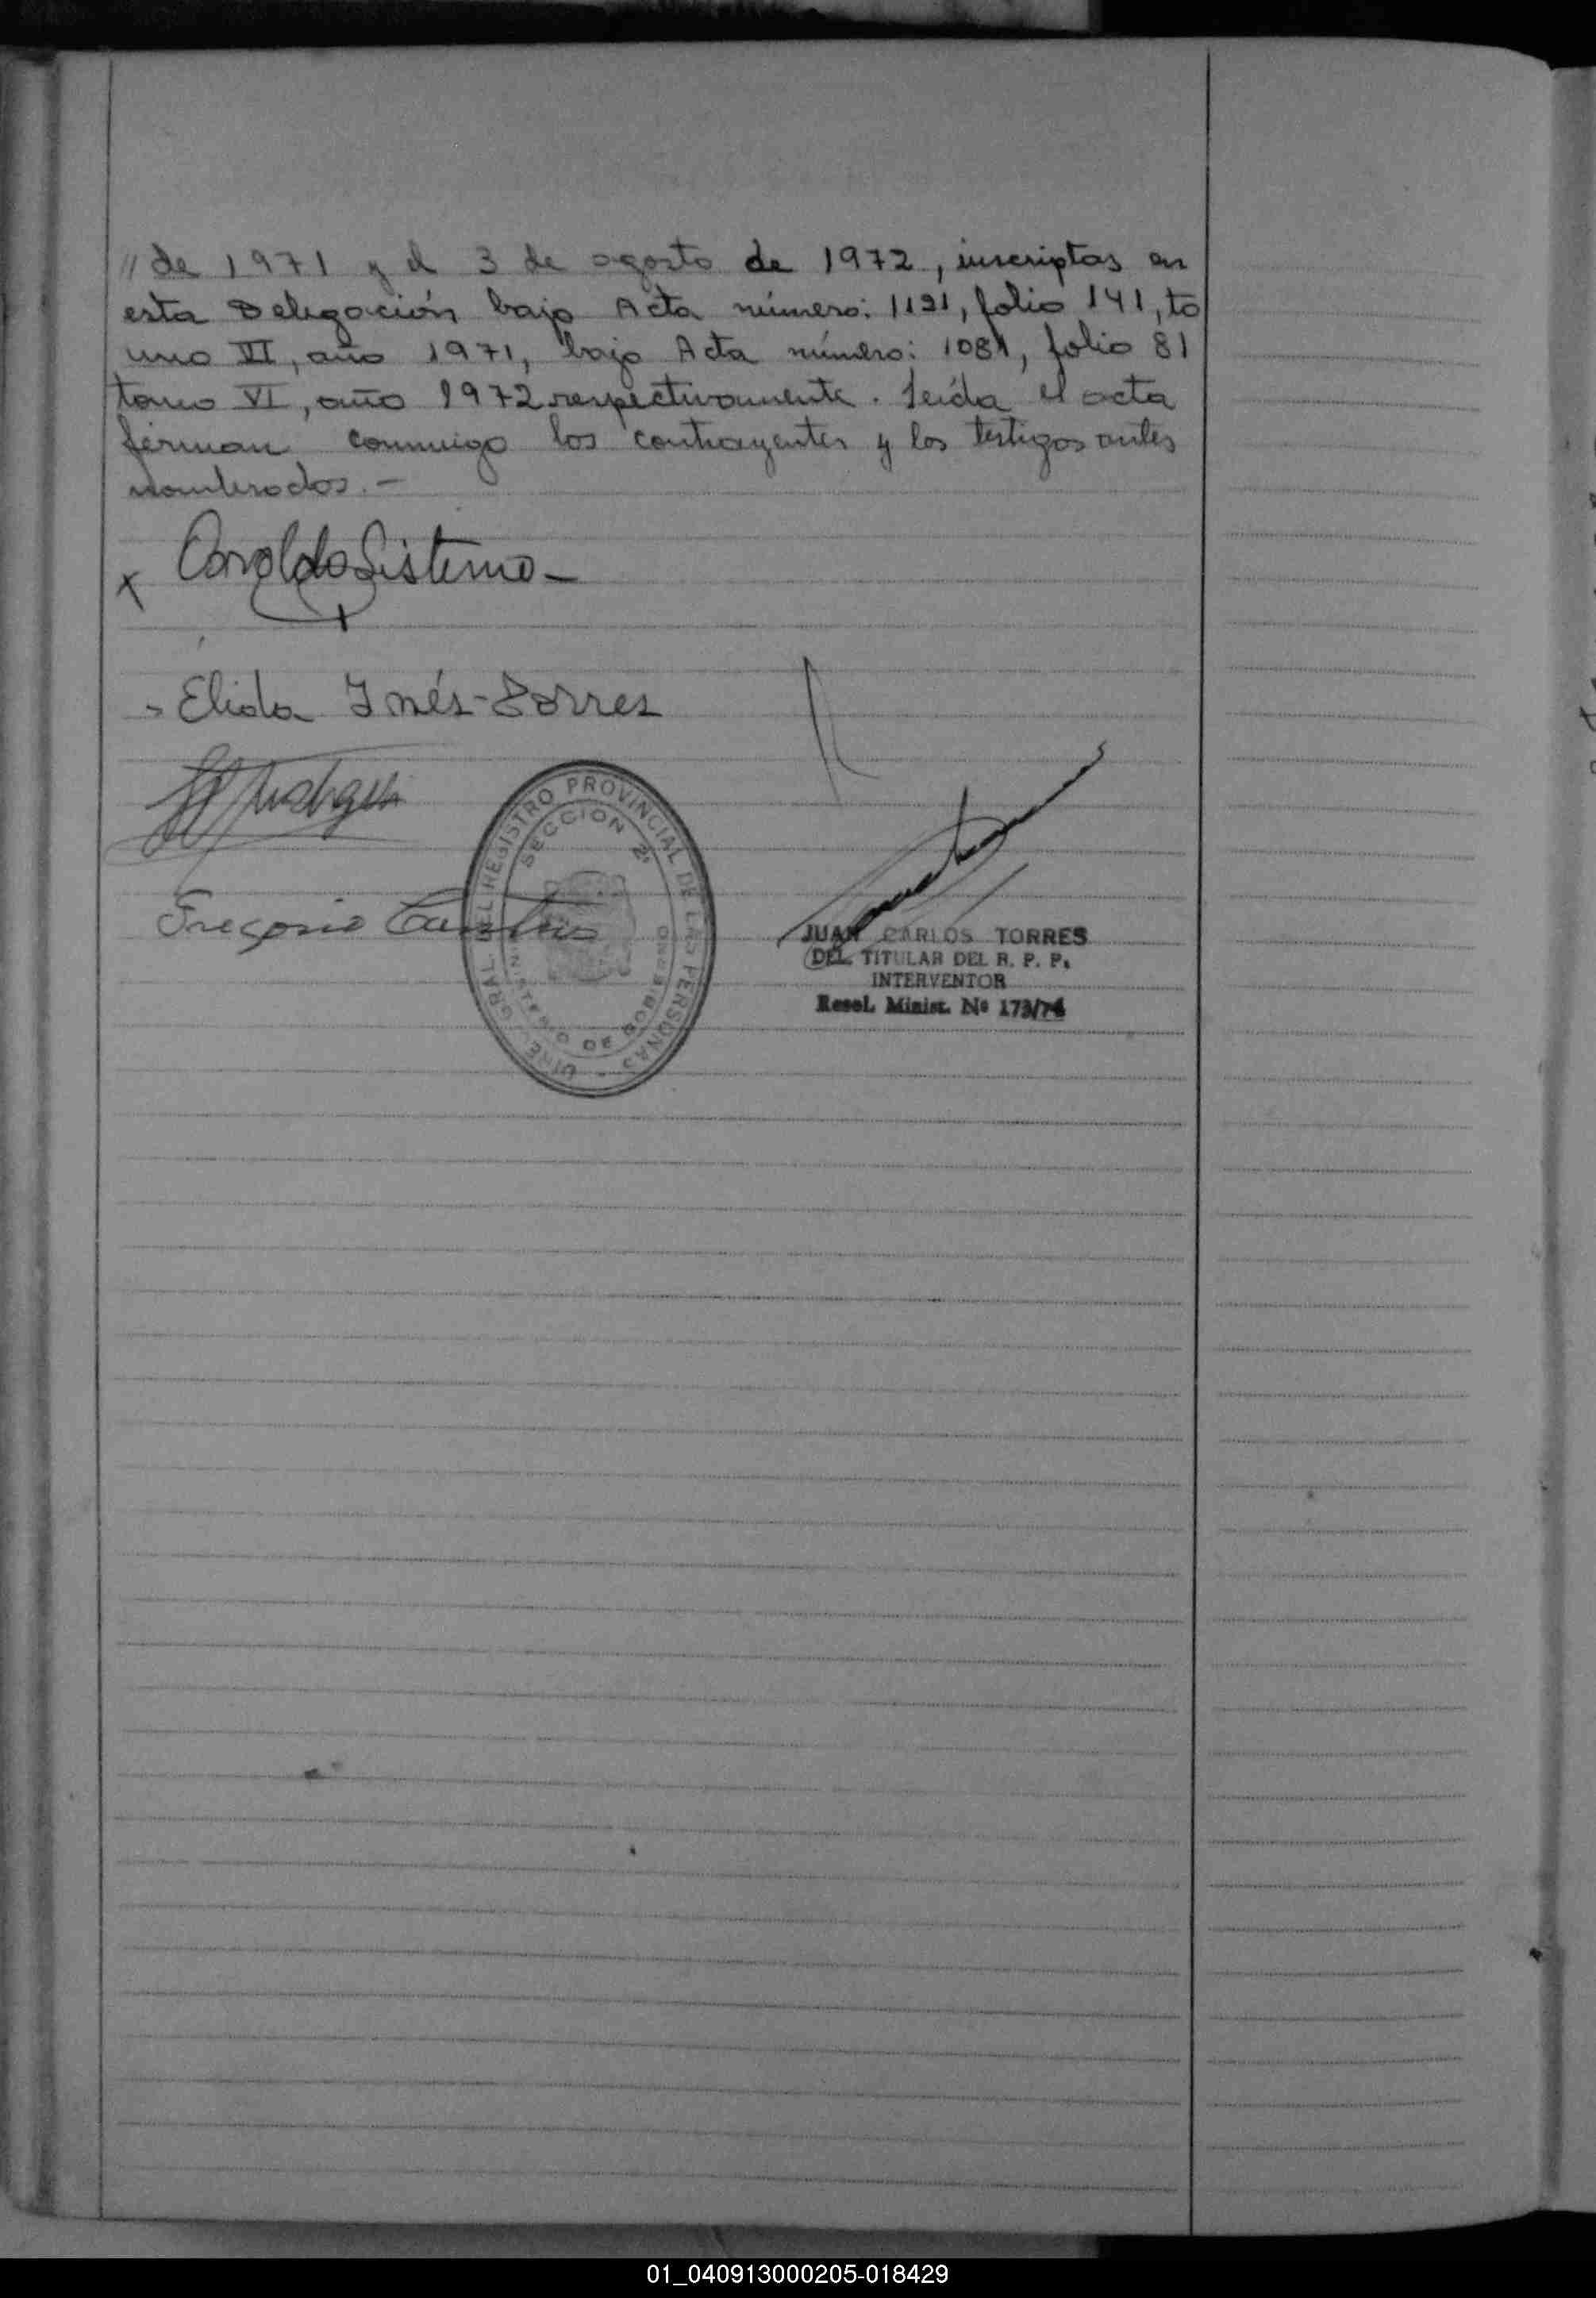 // de 1971 y el 3 de agosto de 1972, inscriptas en
esta Delegación bajo Acta número: 1121, folio 141, to
mo VI, año 1971, bajo Acta número: 1081, folio 81
tomo VI, año 1972 respectivamente. Leída el acta
firman conmigo los contrayentes y los testigos antes
nombrados.-
x Osvaldo Sisterna-
Elida Inés Torres
Gregorio
DIRE. GRAL. DEL REGISTRO PROVINCIAL DE LAS PERSONAS -
SECCION 2ª
MINISTERIO DE GOBIERNO
JUAN CARLOS TORRES
DEL. TITULAR DEL R. P. P.
INTERVENTOR
Resol. Minist. Nº 173/74
01_040913000205-018429